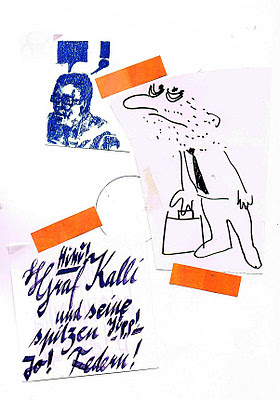 !
Graf Kalli
und seine
spitzen
Jo! Federn!